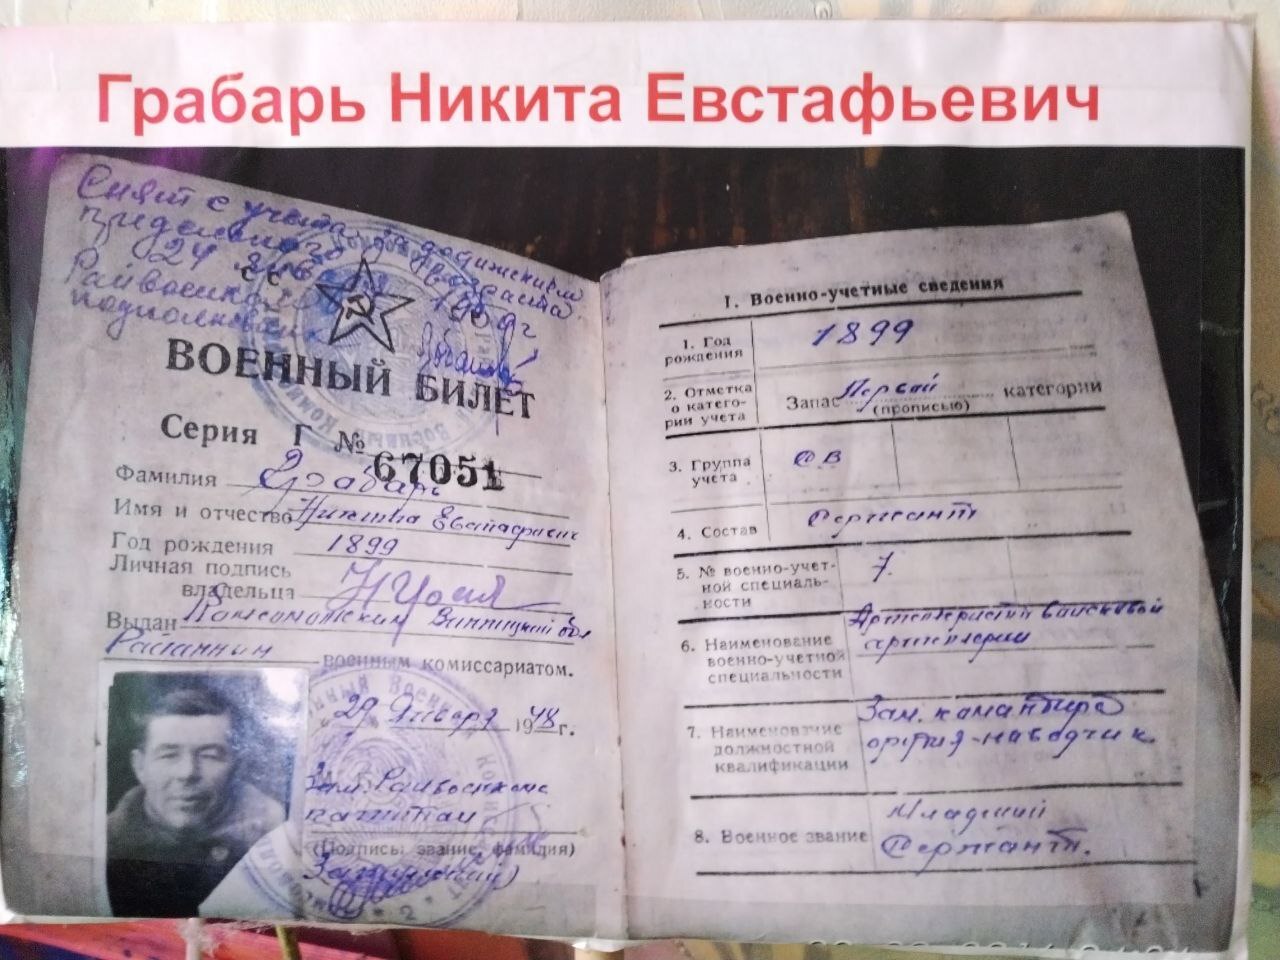 Грабарь Никита Евстафьевич
Снят с учета по достижении
предельного возраста
24 1950 г
Райвоенком
подполковник
ВОЕННЫЙ БИЛЕТ
Серия Г № 67051
Фамилия Грабарь
Имя и отчество Никита Евстафьевич
Год рождения 1899
Личная подпись
владельца
Выдан Комсомольским Винницкой обл
Районним военным комиссариатом.
29 Января 1948 г.
Зам. Райвоенкома
капитан
(Подпись, звание, фамилия)
I. Военно-учетные сведения
1. Год рождения 1899
2. Отметка о категории учета Запас Первой категории
(прописью)
3. Группа учета СВ
4. Состав Сержант
5. № военно-учетной специальности 7.
6. Наименование военно-учетной специальности Артиллерист войсковой артиллерии
7. Наименование должностной квалификации Зам. командира орудия-наводчик
8. Военное звание Младший Сержант.